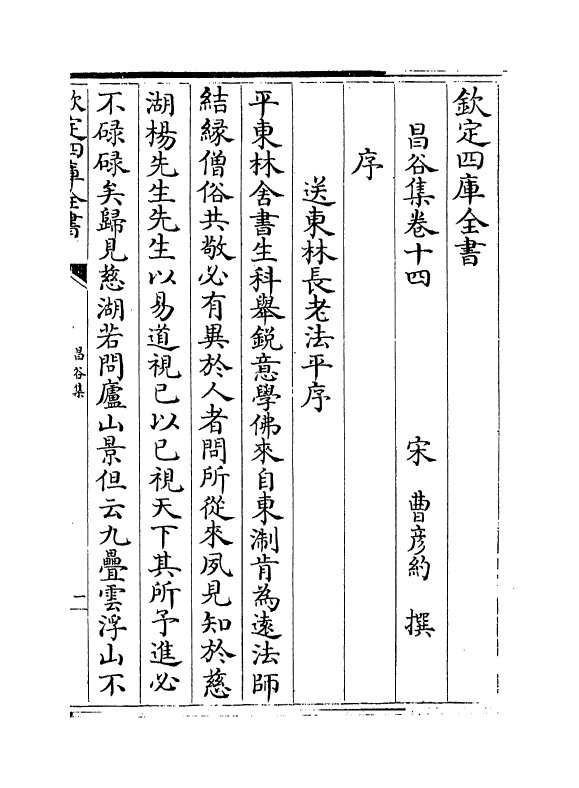 欽定四庫全書
昌谷集卷十四
宋 曹彦約 撰
序
送東林長老法平序
平東林舍書生科舉鋭意學佛來自東淛肯為逺法師
結緣僧俗共敬必有異於人者問所從來夙見知於慈
湖楊先生先生以易道視已以已視天下其所予進必
不碌碌矣歸見慈湖若問廬山景但云九疊雲浮山不
欽定四庫全書
昌谷集
一